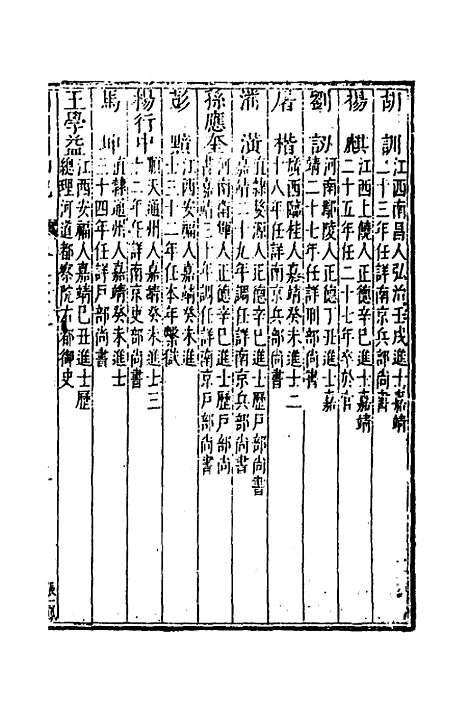 胡 訓 江西南昌人弘治壬戌進士嘉靖
二十三年任詳南京兵部尚書
楊 麒 江西上饒人正德辛巳進士嘉靖
二十五年任二十七年卒於官
劉 訒 河南鄢陵人正德丁丑進士嘉
靖二十七年任詳刑部尚書
屠 楷 廣西臨桂人嘉靖癸未進士二
十八年任詳南京兵部尚書
潘 潢 直隷婺源人正德辛巳進士歷戶部尚書
嘉靖二十九年調任詳南京兵部尚書
孫應奎 河南衛輝人正德辛巳進士歷戶部尚
書嘉靖三十年調任詳南京戶部尚書
彭 黯 江西安福人嘉靖癸未進
士三十二年任本年繫獄
楊行中 順天通州人嘉靖癸未進士三
十二年任詳南京吏部尚書
馬 坤 直隷通州人嘉靖癸未進士
三十四年任詳戶部尚書
王學益 江西安福人嘉靖己丑進士歷
總理河道都察院右都御史